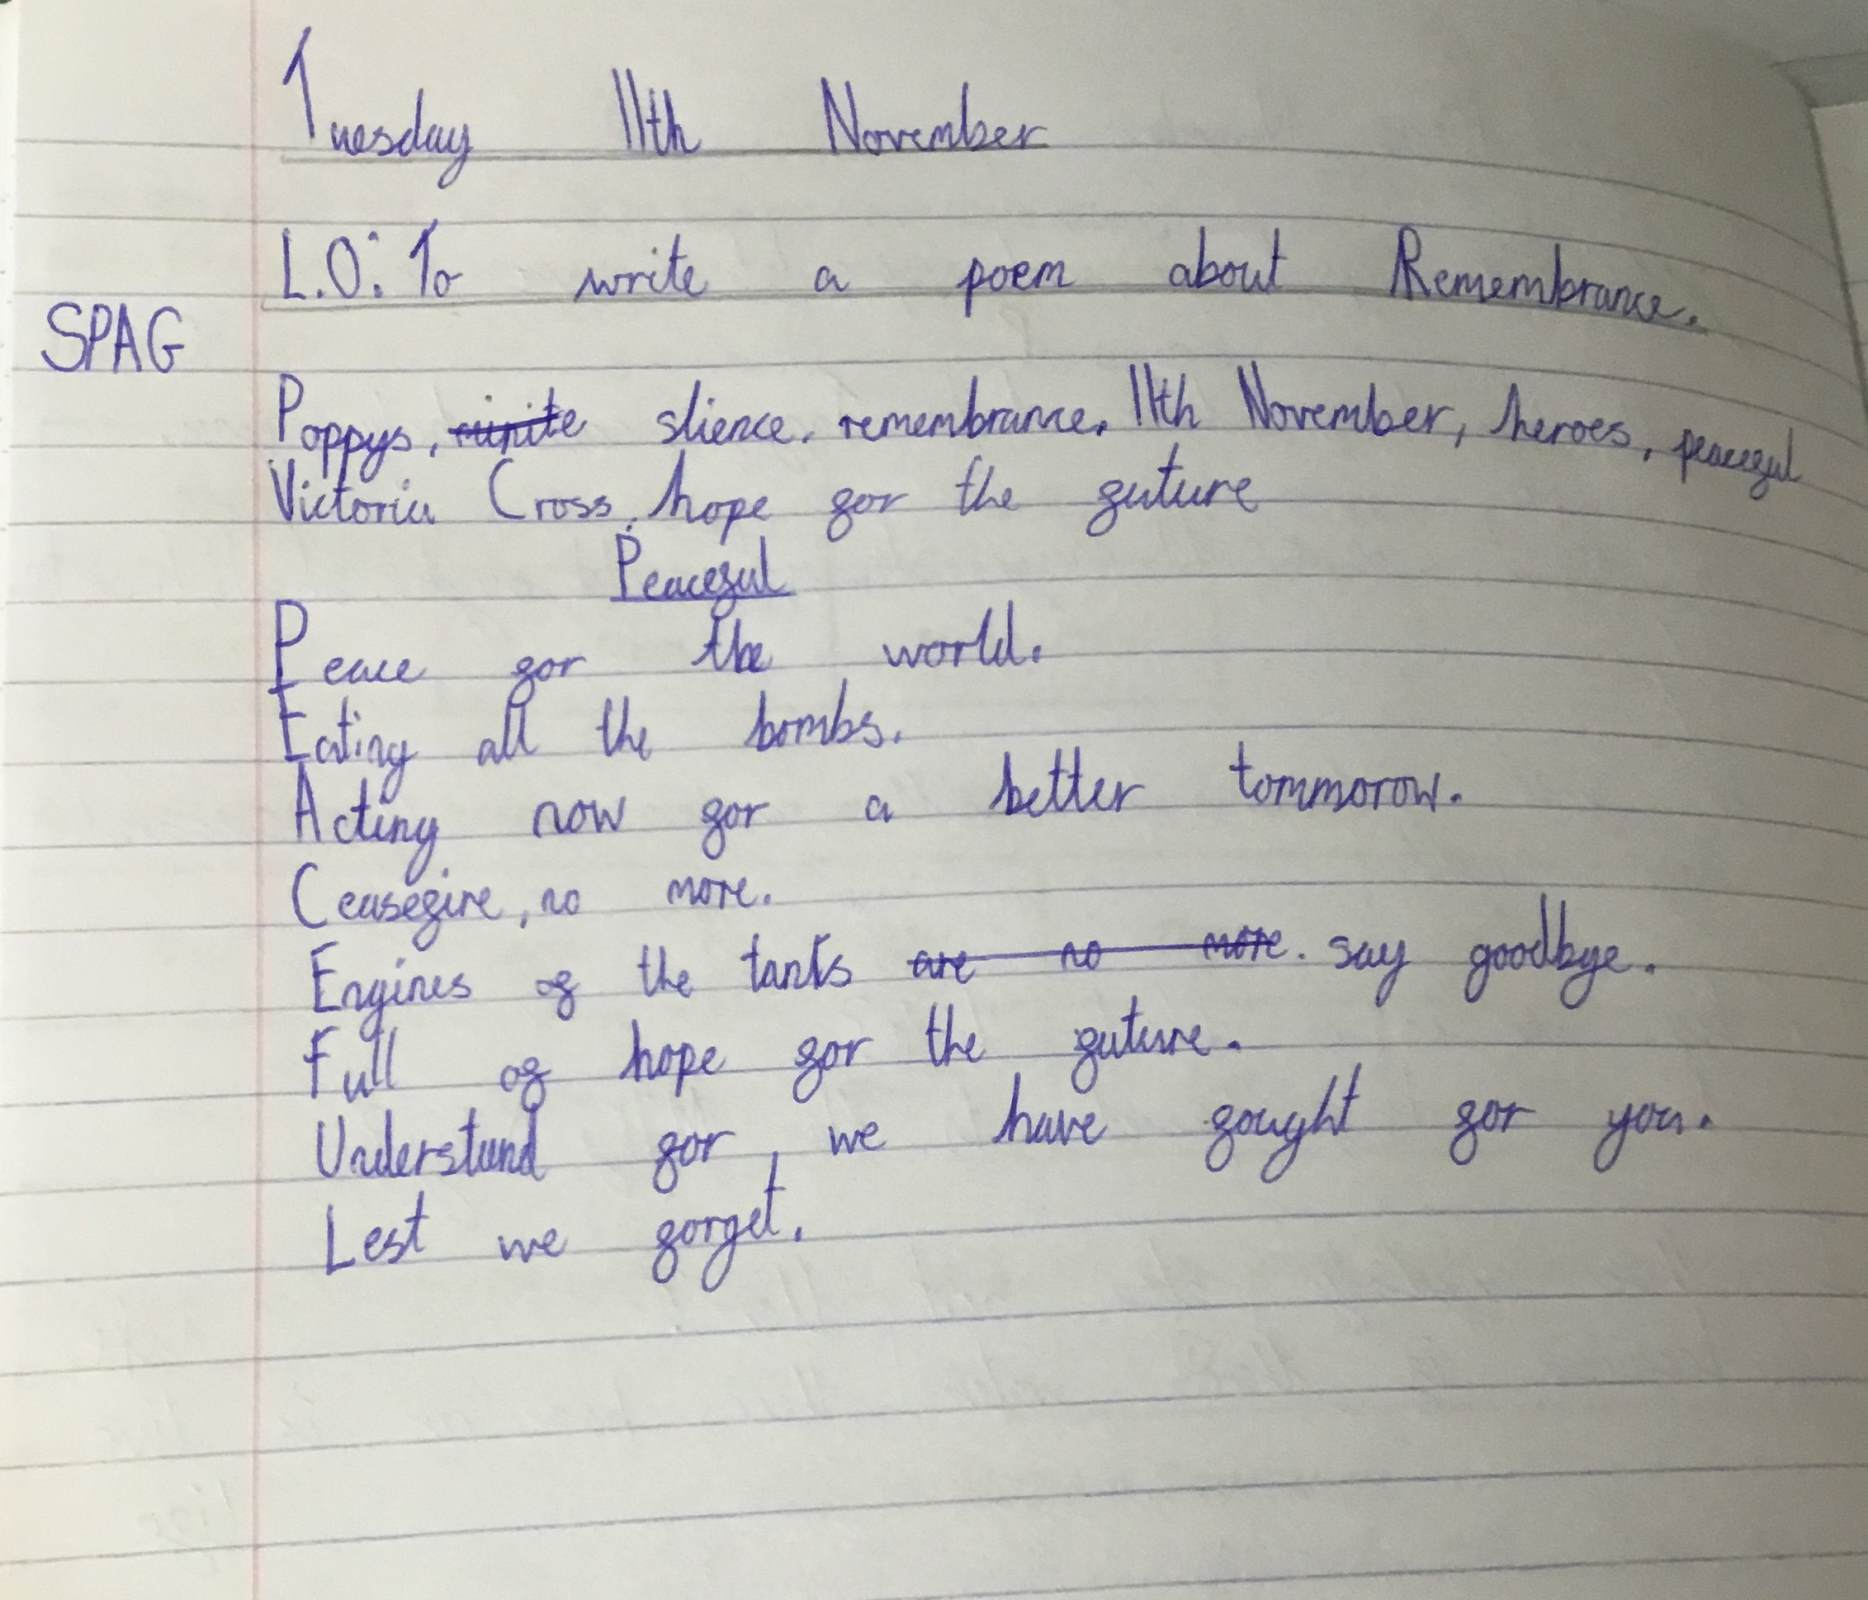 Tuesday 11th November
L.O: To write a poem about Remembrance.
SPAG
Poppys, slience, remembrance, 11th November, heroes, peaceful
Victoria Cross, hope for the future
Peaceful
Peace for the world.
Eating all the bombs.
Acting now for a better tommorow.
Ceasefire, no more.
Engines of the tanks are no more. say goodbye.
Full of hope for the future.
Understand for, we have fought for you.
Lest we forget.